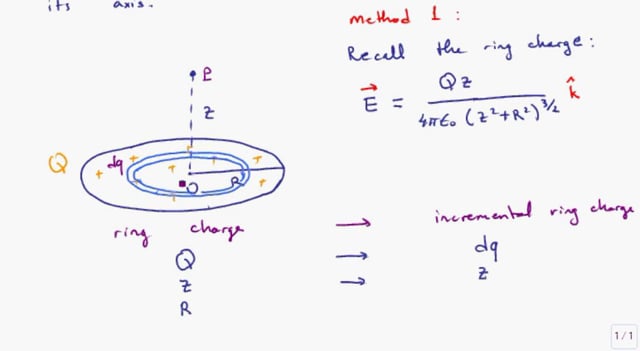 its axis.
Method 1:
Recall the ring charge:
E⃗ = Qz / 4πε₀ (z²+R²)^3/2 k̂
P
z
Q
dq
+ + + + + + +
O
R
ring charge → incremental ring charge
Q → dq
z → z
R
1/1